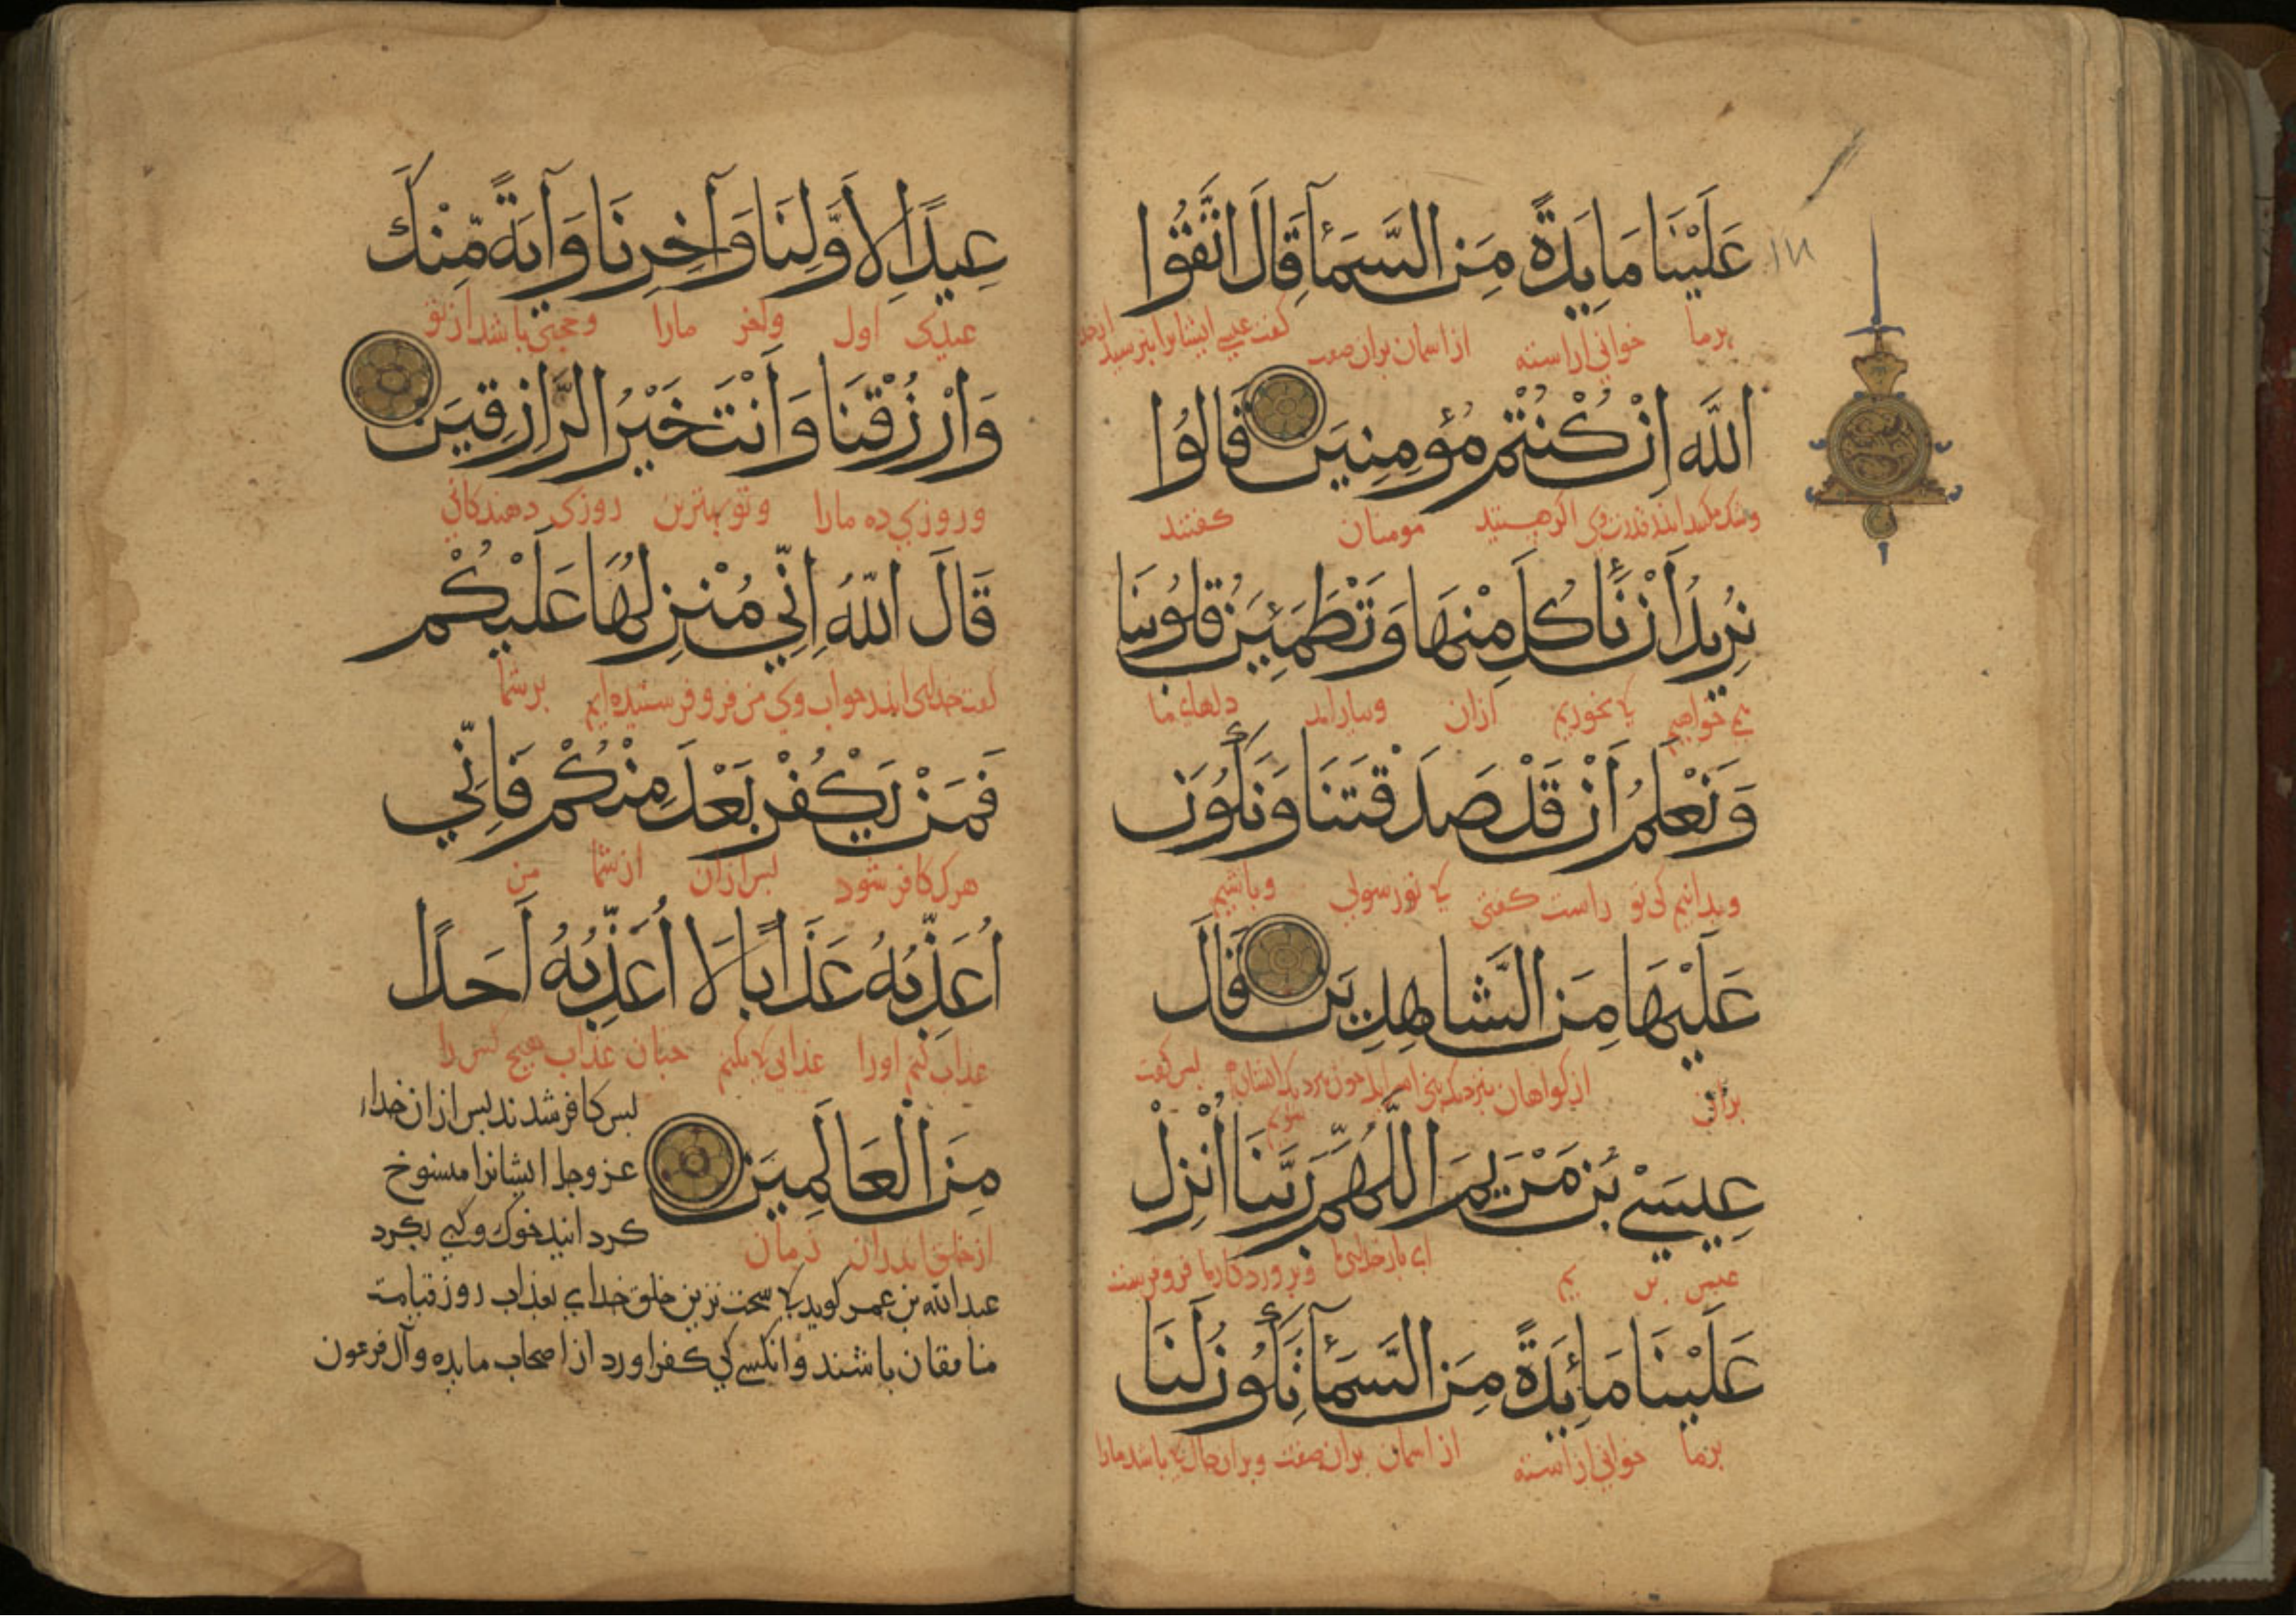 عَلَيْنَا مَايِدَةً مِنَ السَّمَآءِ قَالَ اتَّقُوا
برما خوانی اراسته از اسمان بران صفت کفت عیسی ایشانرا بترسید از خدا
اللّٰهَ اِنْ كُنْتُمْ مُؤمِنِينَ قَالُوا
اکر هستید مومنان کفتند
نُرِيدُ اَنْ نَأكُلَ مِنْهَا وَتَطْمَئِنَّ قُلُوبُنَا
می خواهیم کا بخوریم ازان وبیارامد دلهاء ما
وَنَعْلَمُ اَنْ قَدْ صَدَقْتَنَا وَنَكُونَ
وبدانیم کی تو راست کفتی کا تو رسولی وباشیم
عَلَيْهَا مِنَ الشَّاهِدِينَ قَالَ
بران از کواهان بس کفت
عِيسَى بْنُ مَرْيَمَ اللّٰهُمَّ رَبَّنَا اَنْزِلْ
عیسی بن یم ای بار خدای ما وپروردکار ما فرو فرست
عَلَيْنَا مَائِدَةً مِنَ السَّمَآءِ تَكُونُ لَنَا
برما خوانی اراسته از اسمان بران صفت وبران حال کا باشد مارا
عِيدًا لِاَوَّلِنَا وَآخِرِنَا وَآيَةً مِنْكَ
عیدی اول واخر مارا وحجتی باشد از تو
وَارْزُقْنَا وَاَنْتَ خَيْرُ الرَّازِقِينَ
وروزی ده مارا وتو بهترین روزی دهندکانی
قَالَ اللّٰهُ اِنِّي مُنَزِّلُهَا عَلَيْكُمْ
کفت خدای اندر جواب وی من فرو فرستیده ایم برشما
فَمَنْ يَكْفُرْ بَعْدُ مِنْكُمْ فَاِنِّي
هرک کافر شود بس ازان از شما من
اُعَذِّبُهُ عَذَابًا لَا اُعَذِّبُهُ اَحَدًا
عذاب کنم اورا عذابی کا نکنم چنان عذاب هیچ کس را
بس کافر شدند بس ازان خداء
مِنَ الْعَالَمِينَ
عز وجل ایشانرا مسوخ
از خلق اندران زمان
کردانید خوک وکپی بکرد
عبد الله بن عمر کوید کا سخت ترین خلق خدای بعذاب روز قیامت
منافقان باشند وانکسی کی کفر اورد از اصحاب مایده وآل فرعون